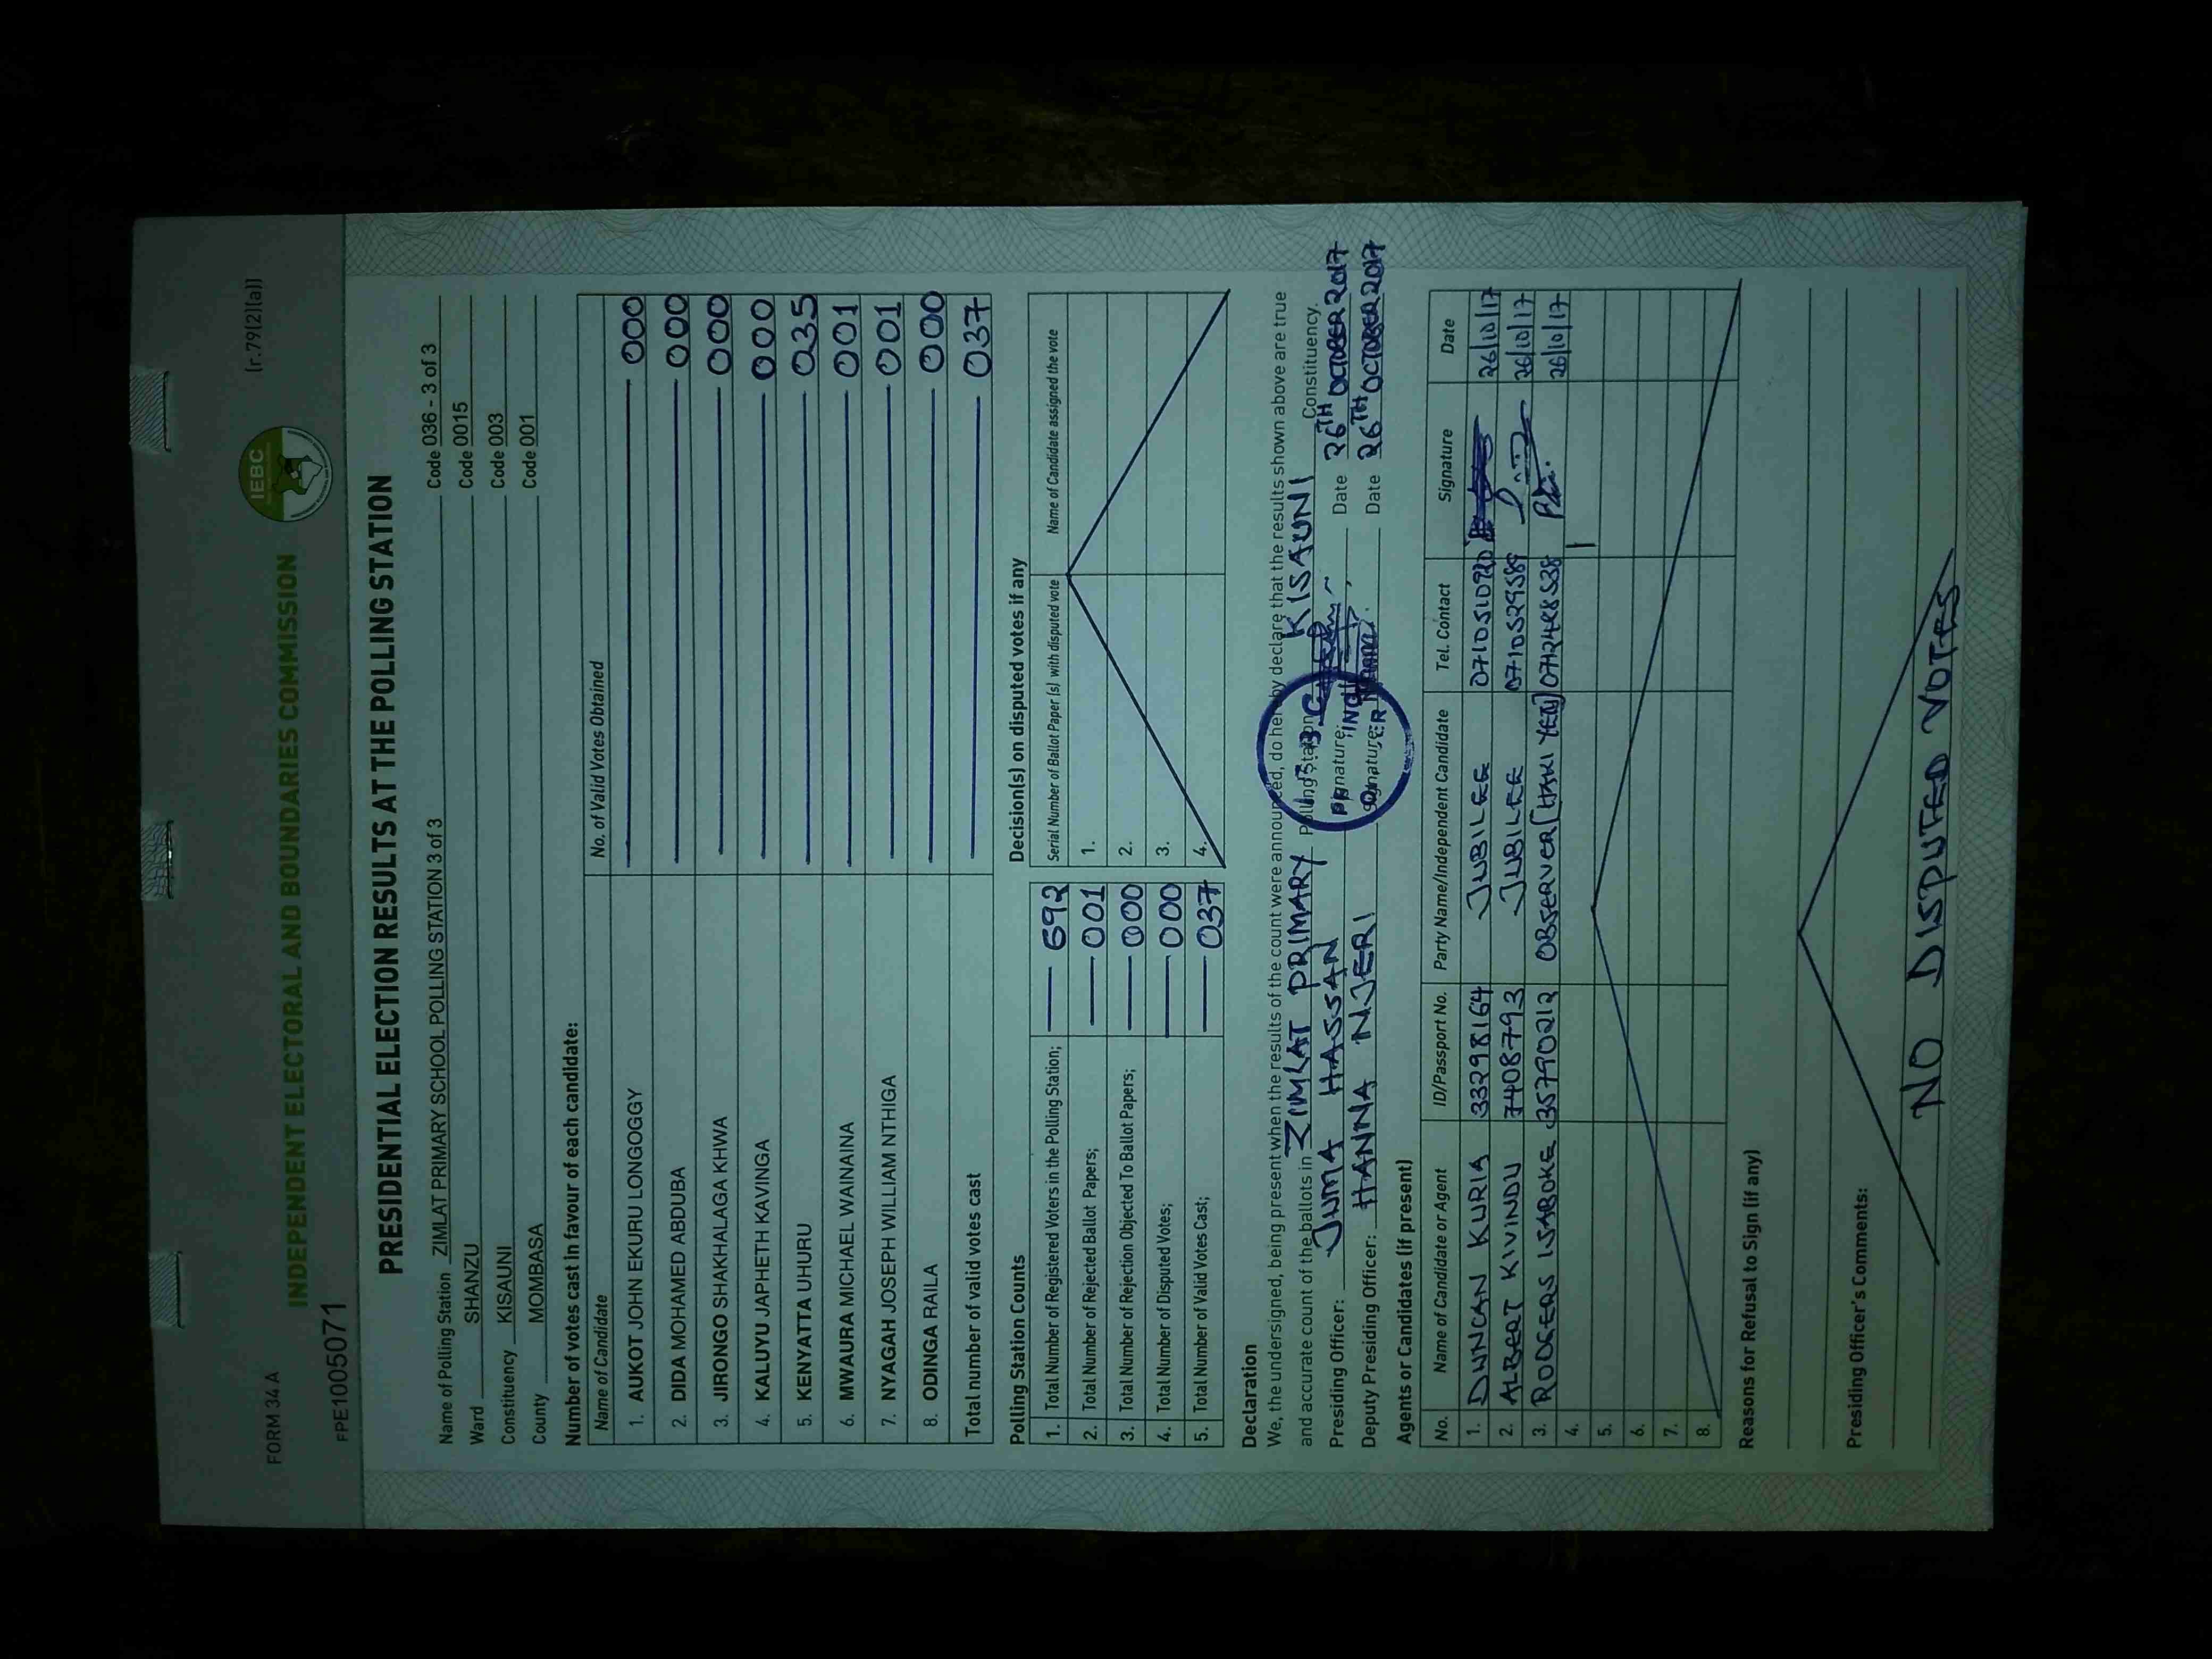 FORM 34 A
(r.79(2)(a))
IEBC
INDEPENDENT ELECTORAL AND BOUNDARIES COMMISSION
FPE1005071
PRESIDENTIAL ELECTION RESULTS AT THE POLLING STATION
Name of Polling Station ZIMLAT PRIMARY SCHOOL POLLING STATION 3 of 3 Code 036 - 3 of 3
Ward SHANZU Code 0015
Constituency KISAUNI Code 003
County MOMBASA Code 001
Number of votes cast in favour of each candidate:
Name of Candidate No. of Valid Votes Obtained
1. AUKOT JOHN EKURU LONGOGGY 000
2. DIDA MOHAMED ABDUBA 000
3. JIRONGO SHAKHALAGA KHWA 000
4. KALUYU JAPHETH KAVINGA 000
5. KENYATTA UHURU 035
6. MWAURA MICHAEL WAINAINA 001
7. NYAGAH JOSEPH WILLIAM NTHIGA 001
8. ODINGA RAILA 000
Total number of valid votes cast 037
Polling Station Counts
1. Total Number of Registered Voters in the Polling Station; 692
2. Total Number of Rejected Ballot Papers; 001
3. Total Number of Rejection Objected To Ballot Papers; 000
4. Total Number of Disputed Votes; 000
5. Total Number of Valid Votes Cast; 037
Decision(s) on disputed votes if any
Serial Number of Ballot Paper (s) with disputed vote Name of Candidate assigned the vote
1.
2.
3.
4.
Declaration
We, the undersigned, being present when the results of the count were announced, do hereby declare that the results shown above are true
and accurate count of the ballots in ZIMLAT PRIMARY Polling Station KISAUNI Constituency.
Presiding Officer: JUMA HASSAN Signature: Date 26TH OCTOBER 2017
Deputy Presiding Officer: HANNA NJERI Signature: Date 26TH OCTOBER 2017
Agents or Candidates (if present)
No. Name of Candidate or Agent ID/Passport No. Party Name/Independent Candidate Tel. Contact Signature Date
1. DUNCAN KURIA 33298164 JUBILEE 26/10/17
2. ALBERT KIVINDU 7408793 JUBILEE 0710529589 26/10/17
3. RODGERS ISABOKE 35790212 OBSERVER [HAKI YETU] 26/10/17
4.
5.
6.
7.
8.
Reasons for Refusal to Sign (if any)
Presiding Officer's Comments:
NO DISPUTED VOTES